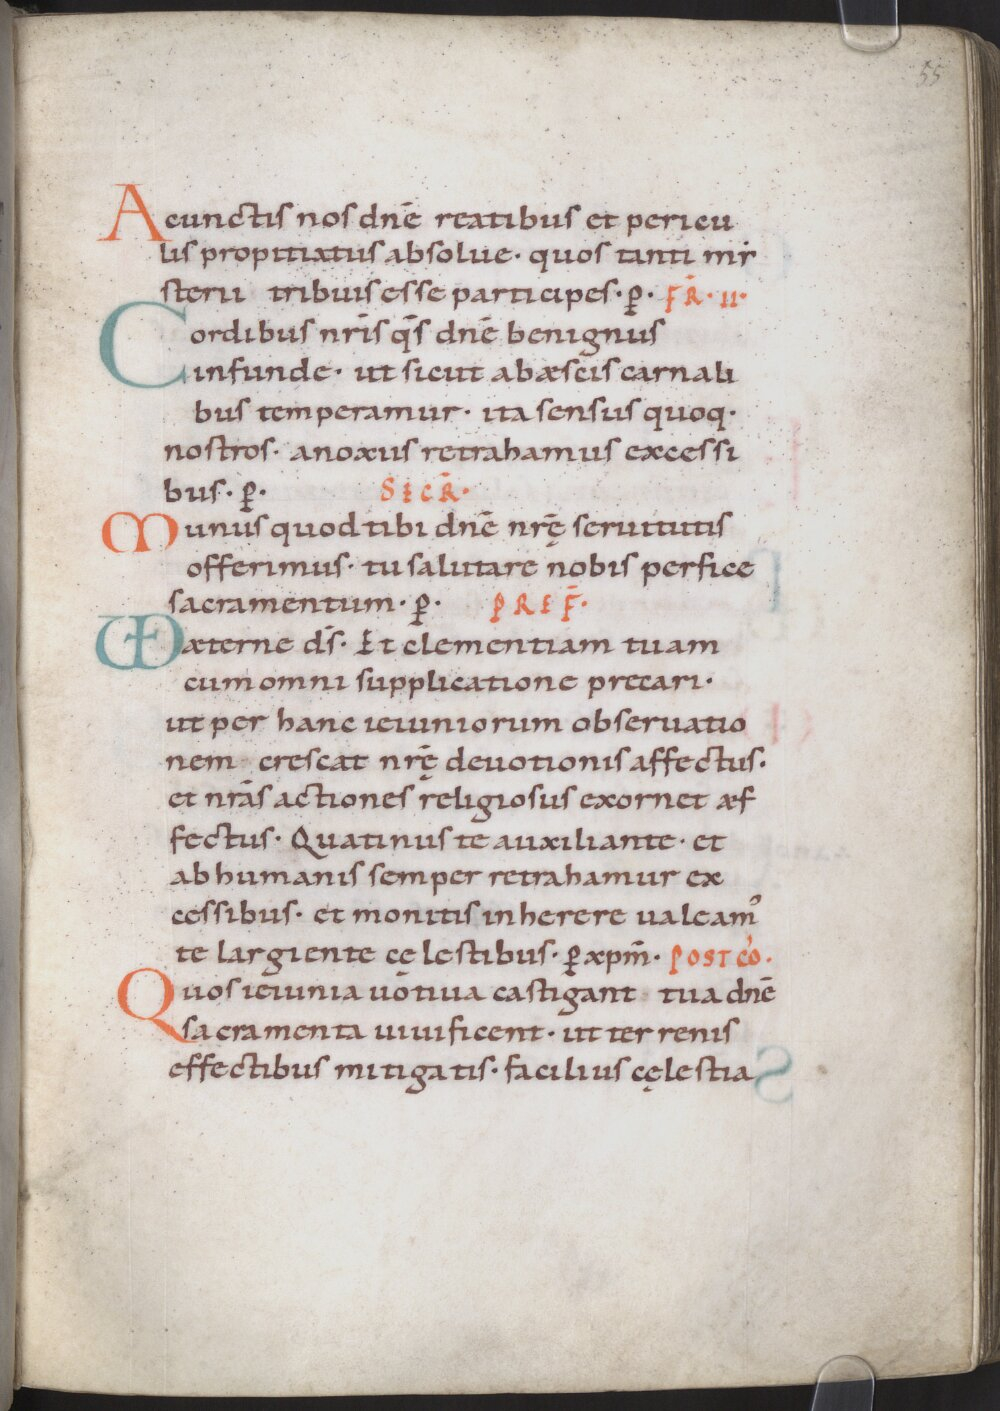 55
A cunctis nos dnē reatibus et pericu
lis propitiatus absolue· quos tanti mıṙ
sterii tribuis esse participes· p̱· FR̄· II·
Cordibus nr̄is q̄s dnē benignus
infunde· ut sicut ab æscis carnali
bus temperamur· ita sensus quoq·
nostros· a noxiis retrahamus excessi
bus· p̱· SECR̄·
Munus quod tibi dnē nr̄ę seruitutis
offerimus· tu salutare nobis perfice
sacramentum· p̱· PREF̄·
VD æterne ds̄· Et clementiam tuam
cum omni supplicatione precari·
ut per hanc ieiuniorum obseruatio
nem crescat nr̄ę deuotionis affectus·
et nr̄as actiones religiosus exornet æf
fectus· Quatinus te auxiliante· et
ab humanis semper retrahamur ex
cessibus· et monitis inherere ualeam᾽
te largiente cęlestibus· p̱ xpm̄· POST CO᷾·
Quos ieiunia uotiua castigant tua dnē
sacramenta uiuificent· ut terrenis
effectibus mitigatis· facilius cęlestia